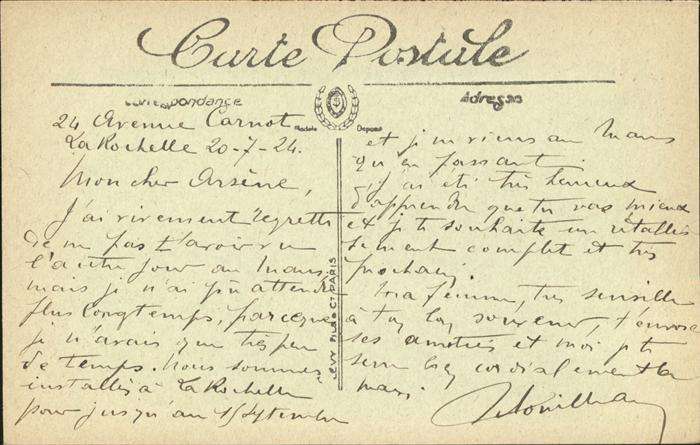 Carte Postale
Correspondance
Adresse
24 Avenue Carnot
La Rochelle 20-7-24.
Mon cher Arsène,
J'ai vivement regretté
de ne pas t'avoir vu
l'autre jour au Mans
mais je n'ai pu attendre
plus longtemps, parceque
je n'avais que très peu
de temps. Nous sommes
installés à La Rochelle
pour jusqu'au 15 septembre
Modèle Déposé
LEVY FILS & Cie PARIS
et je ne viens au Mans
qu'en passant.
J'ai été très heureux
d'apprendre que tu vas mieux
et je te souhaite un rétablis-
sement complet et très
prochain.
Ma femme, très sensible
à ton bon souvenir, t'envoie
ses amitiés et moi je te
serre bien cordialement la
main.